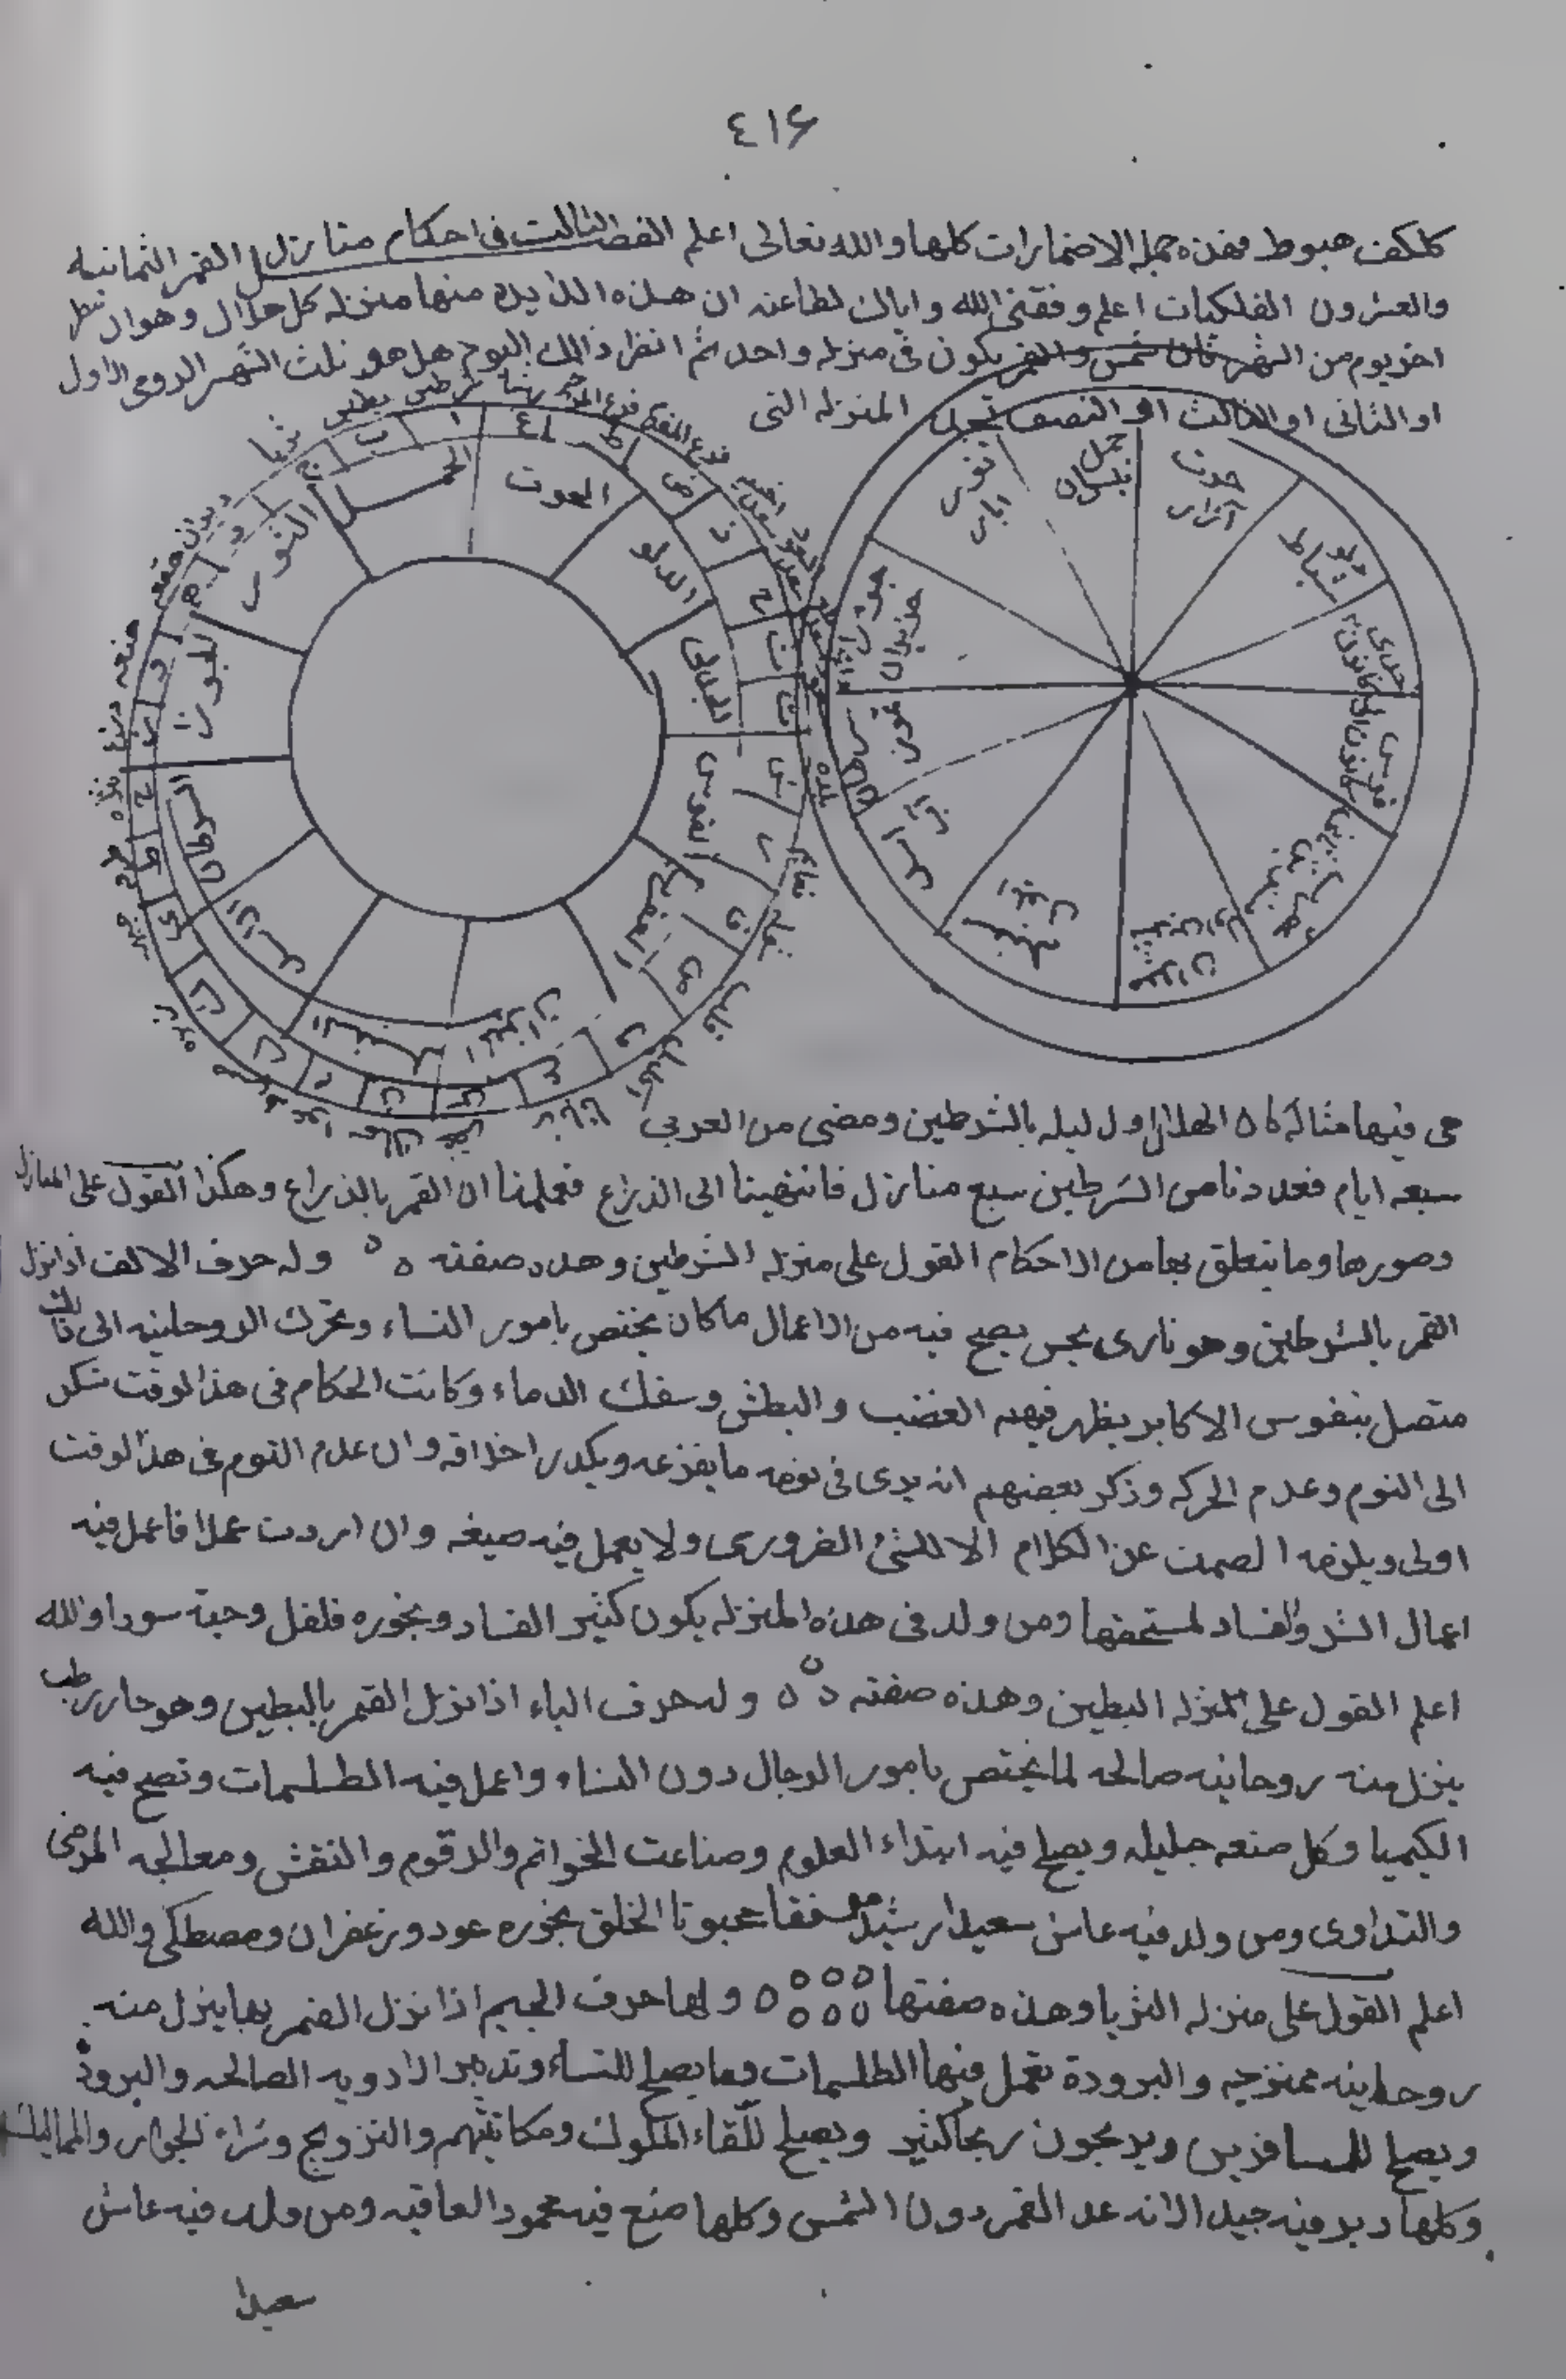 ٤١٦
كلكف هبوط فهذه جملة الاضمارات كلها والله تعالى اعلم الفصل الثالث في احكام منازل القمر الثمانيه
والعشرون الفلكيات اعلم وفقني الله واياك لطاعته ان هذه الدايره منها منزله كل هلال وهو ان
اخر يوم من الشهر فان شمس والقمر يكون في منزله واحد ثم انظر ذالك اليوم هل هو ثلث الشهر الرومي الاول
او الثاني او الثالث او النصف تجد المنزله التي
حوت
آزار
حمل
نيسان
ثور
ايار
جوزا
حزيران
اسد
سنبله
ايلول
ميزان
تشرين اول
قوس
كانون
جدي
كانون
دلو
شباط
الحمل
الثور
الجوزا
السرطان
الاسد
السنبله
الميزان
العقرب
القوس
الجدي
الدلو
الحوت
ثريا
هقعه
هنعه
ذراع
نثره
قلب
بلده
هي فيها مثاله كان الهلال اول ليله بالشرطين ومضى من العربي
سبعه ايام فعددنا من الشرطين سبع منازل فانتهينا الى الذراع فعلمنا ان القمر بالذراع وهكذا القول على المنازل
وصورها وما يتعلق بها من الاحكام القول على منزله الشرطين وهذه صفته ه ه وله حرف الالف اذا نزل
القمر بالشرطين وهو ناري نحس يصح فيه من الاعمال ما كان يختص بامور النساء وتحرك الروحانيه الى ذالك
متصل بنفوس الاكابر يظهر فيهم الغضب والبطش وسفك الدماء وكانت الحكام في هذا الوقت تسكن
الى النوم وعدم الحركه وذكر بعضهم انه يرى في نومه ما يفزعه ويكدر اخلاقه وان عدم النوم في هذا الوقت
اولى ويلزمه الصمت عن الكلام الا للشئ الضروري ولا يعمل فيه صيغه وان اردت عملا فاعمل فيه
اعمال الشر والفساد لمستحقها ومن ولد في هذه المنزله يكون كثير الفساد وبخوره فلفل وحبة سودا والله
اعلم القول على المنزله البطين وهذه صفته ه ه ه وله حرف الباء اذا نزل القمر بالبطين وهو حار رطب
ينزل منه روحانيه صالحه لما يختص بامور الرجال دون النساء واعمل فيه الطلسمات وتصح فيه
الكيميا وكل صنعه جليله ويصلح فيه ابتداء العلوم وصناعت الخواتم والرقوم والنقش ومعالجه المرضى
والتداوي ومن ولد فيه عاش سعيدا رشيدا موفقا محبوبا الخلق بخوره عود وزعفران ومصطكى والله
اعلم القول على منزله الثريا وهذه صفتها ه ه ه ه ه ه ه ولها حرف الجيم اذا نزل القمر بها ينزل منه
روحانيه ممتزجه والبرودة تعمل فيها الطلسمات وما يصلح للنساء وتدبير الادويه الصالحه والبروده
ويصلح للمسافرين ويربحون ربحا كثير ويصلح للقاء الملوك ومكاتبتهم والتزويج وشراء الجوار والمماليك
وكلها دبر فيه جيد الا انه عد القمر دون الشمس وكلها صنع فيه محمود العاقبه ومن ولد فيه عاش
سعيدا